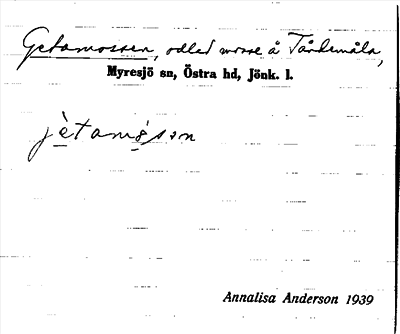 Getamossen, odled mosse å Tårdemåla,
Myresjö sn, Östra hd, Jönk. l.
jètamòsən
Annalisa Anderson 1939